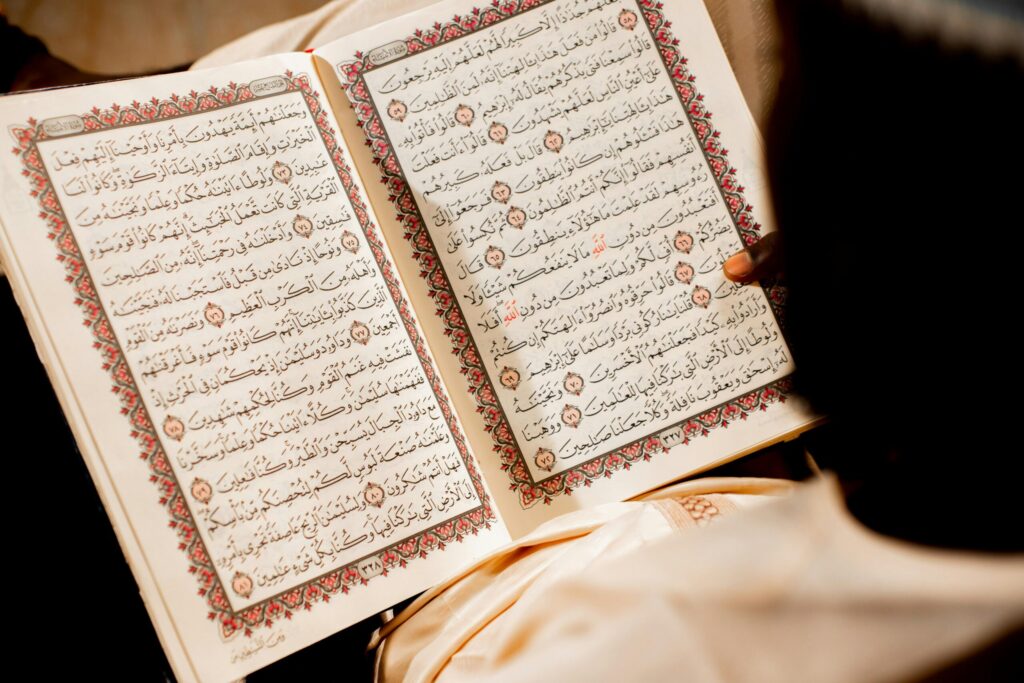 سُورَةُ الأَنبِيَاءِ
فَجَعَلَهُمْ جُذَٰذًا إِلَّا كَبِيرًا لَّهُمْ لَعَلَّهُمْ إِلَيْهِ يَرْجِعُونَ ٥٨
قَالُوا۟ مَن فَعَلَ هَٰذَا بِـَٔالِهَتِنَآ إِنَّهُۥ لَمِنَ ٱلظَّٰلِمِينَ ٥٩
قَالُوا۟ سَمِعْنَا فَتًى يَذْكُرُهُمْ يُقَالُ لَهُۥٓ إِبْرَٰهِيمُ ٦٠ قَالُوا۟ فَأْتُوا۟ بِهِۦ
عَلَىٰٓ أَعْيُنِ ٱلنَّاسِ لَعَلَّهُمْ يَشْهَدُونَ ٦١ قَالُوٓا۟ ءَأَنتَ فَعَلْتَ
هَٰذَا بِـَٔالِهَتِنَا يَٰٓإِبْرَٰهِيمُ ٦٢ قَالَ بَلْ فَعَلَهُۥ كَبِيرُهُمْ
هَٰذَا فَسْـَٔلُوهُمْ إِن كَانُوا۟ يَنطِقُونَ ٦٣ فَرَجَعُوٓا۟ إِلَىٰٓ
أَنفُسِهِمْ فَقَالُوٓا۟ إِنَّكُمْ أَنتُمُ ٱلظَّٰلِمُونَ ٦٤ ثُمَّ نُكِسُوا۟ عَلَىٰ
رُءُوسِهِمْ لَقَدْ عَلِمْتَ مَا هَٰٓؤُلَآءِ يَنطِقُونَ ٦٥ قَالَ
أَفَتَعْبُدُونَ مِن دُونِ ٱللَّهِ مَا لَا يَنفَعُكُمْ شَيْـًٔا وَلَا
يَضُرُّكُمْ ٦٦ أُفٍّ لَّكُمْ وَلِمَا تَعْبُدُونَ مِن دُونِ ٱللَّهِ أَفَلَا
٦٧ قَالُوا۟ حَرِّقُوهُ وَٱنصُرُوٓا۟ ءَالِهَتَكُمْ إِن كُنتُمْ
٦٨ قُلْنَا يَٰنَارُ كُونِى بَرْدًا وَسَلَٰمًا عَلَىٰٓ إِبْرَٰهِيمَ ٦٩
وَأَرَادُوا۟ بِهِۦ كَيْدًا فَجَعَلْنَٰهُمُ ٱلْأَخْسَرِينَ ٧٠ وَنَجَّيْنَٰهُ
وَلُوطًا إِلَى ٱلْأَرْضِ ٱلَّتِى بَٰرَكْنَا فِيهَا لِلْعَٰلَمِينَ ٧١ وَوَهَبْنَا
لَهُۥٓ إِسْحَٰقَ وَيَعْقُوبَ نَافِلَةً وَكُلًّا جَعَلْنَا صَٰلِحِينَ ٧٢
٣٢٧
سُورَةُ الأَنبِيَاءِ
وَجَعَلْنَٰهُمْ أَئِمَّةً يَهْدُونَ بِأَمْرِنَا وَأَوْحَيْنَآ إِلَيْهِمْ فِعْلَ
ٱلْخَيْرَٰتِ وَإِقَامَ ٱلصَّلَوٰةِ وَإِيتَآءَ ٱلزَّكَوٰةِ وَكَانُوا۟ لَنَا
عَٰبِدِينَ ٧٣ وَلُوطًا ءَاتَيْنَٰهُ حُكْمًا وَعِلْمًا وَنَجَّيْنَٰهُ مِنَ
ٱلْقَرْيَةِ ٱلَّتِى كَانَت تَّعْمَلُ ٱلْخَبَٰٓئِثَ إِنَّهُمْ كَانُوا۟ قَوْمَ سَوْءٍ
فَٰسِقِينَ ٧٤ وَأَدْخَلْنَٰهُ فِى رَحْمَتِنَآ إِنَّهُۥ مِنَ ٱلصَّٰلِحِينَ
٧٥ وَنُوحًا إِذْ نَادَىٰ مِن قَبْلُ فَٱسْتَجَبْنَا لَهُۥ فَنَجَّيْنَٰهُ
وَأَهْلَهُۥ مِنَ ٱلْكَرْبِ ٱلْعَظِيمِ ٧٦ وَنَصَرْنَٰهُ مِنَ ٱلْقَوْمِ
ٱلَّذِينَ كَذَّبُوا۟ بِـَٔايَٰتِنَآ إِنَّهُمْ كَانُوا۟ قَوْمَ سَوْءٍ فَأَغْرَقْنَٰهُمْ
أَجْمَعِينَ ٧٧ وَدَاوُۥدَ وَسُلَيْمَٰنَ إِذْ يَحْكُمَانِ فِى ٱلْحَرْثِ إِذْ
نَفَشَتْ فِيهِ غَنَمُ ٱلْقَوْمِ وَكُنَّا لِحُكْمِهِمْ شَٰهِدِينَ ٧٨
فَفَهَّمْنَٰهَا سُلَيْمَٰنَ وَكُلًّا ءَاتَيْنَا حُكْمًا وَعِلْمًا وَسَخَّرْنَا
مَعَ دَاوُۥدَ ٱلْجِبَالَ يُسَبِّحْنَ وَٱلطَّيْرَ وَكُنَّا فَٰعِلِينَ ٧٩
وَعَلَّمْنَٰهُ صَنْعَةَ لَبُوسٍ لَّكُمْ لِتُحْصِنَكُم مِّنۢ بَأْسِكُمْ
فَهَلْ أَنتُمْ شَٰكِرُونَ ٨٠ وَلِسُلَيْمَٰنَ ٱلرِّيحَ عَاصِفَةً تَجْرِى بِأَمْرِهِۦٓ
إِلَى ٱلْأَرْضِ ٱلَّتِى بَٰرَكْنَا فِيهَا وَكُنَّا بِكُلِّ شَىْءٍ عَٰلِمِينَ ٨١
٣٢٨
وَمِنَ ٱلشَّيَٰطِينِ